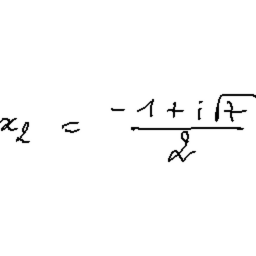 x₂ = (-1 + i√7)/2